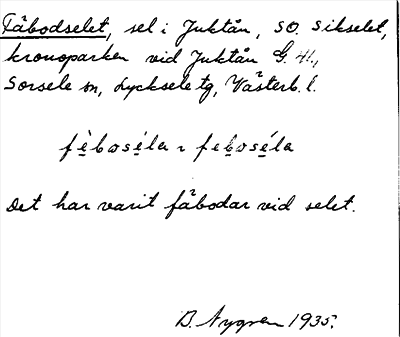 Fäbodselet, sel i Juktån, SO. Sikselet,
kronoparken vid Juktån G. 41.,
Sorsele sn, Lycksele tg, Västerb. l.
fèboséla ~ feboséla
Det har varit fäbodar vid selet.
B. Nygren 1935.